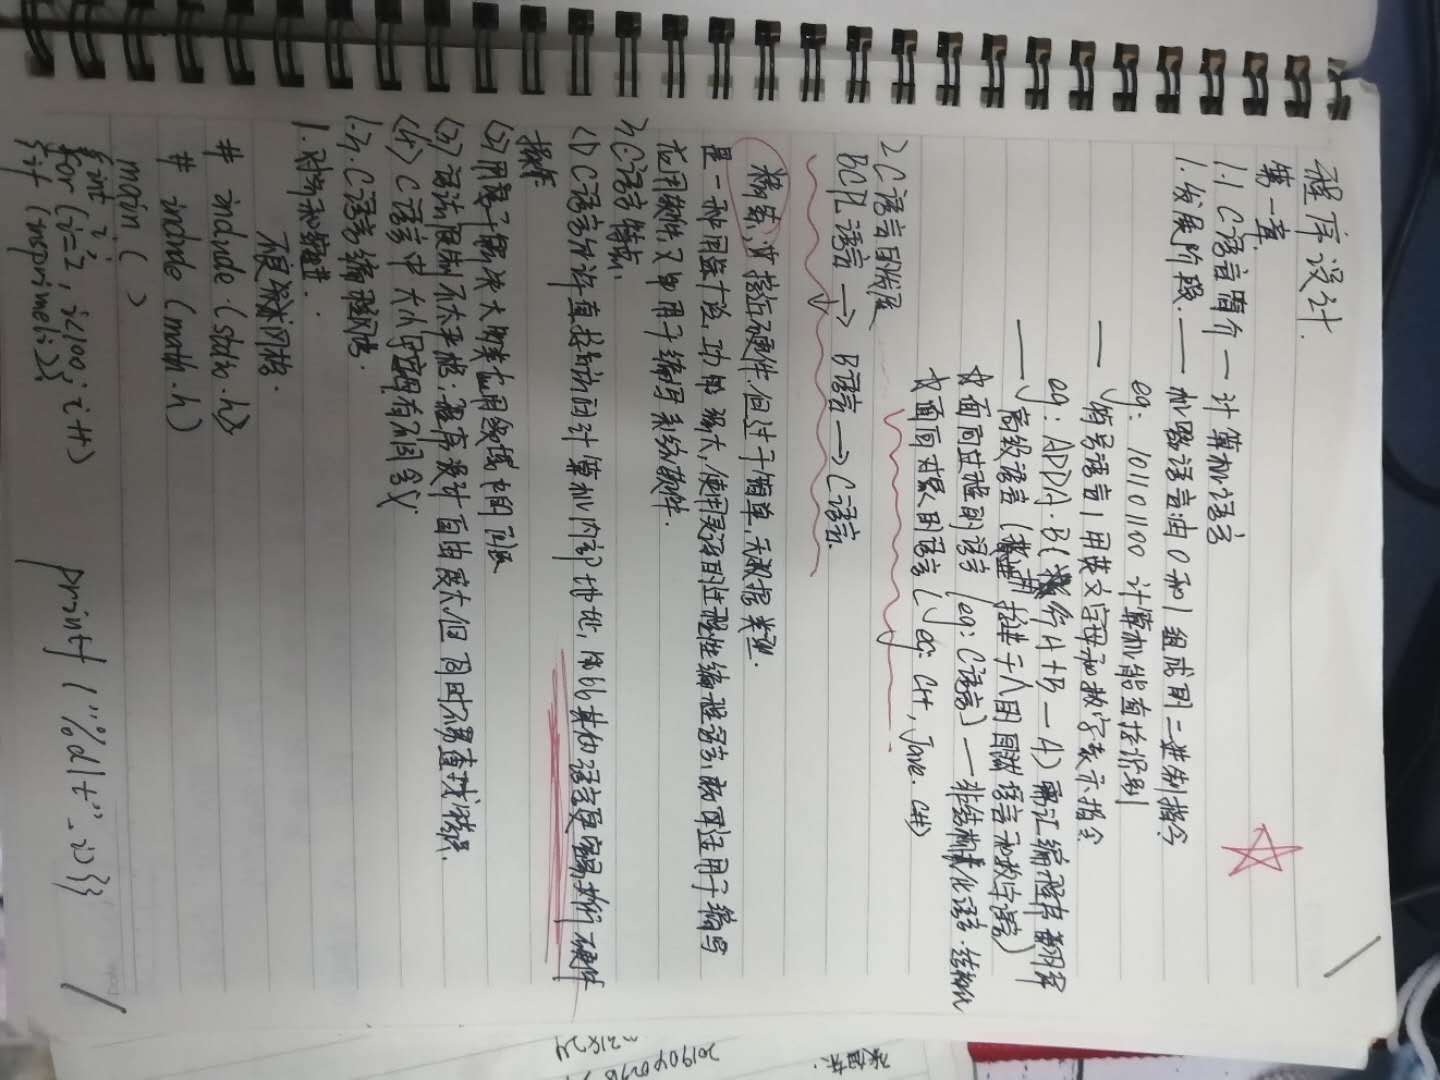 程序设计.
第一章
1.1 C语言简介 — 计算机语言
1.发展阶段. —— 机器语言由0和1组成的二进制指令
eg: 10110110 计算机能直接识别
—— 符号语言 用英文字母和数字表示指令
eg: ADD A.B( A+B—A) 需汇编程序翻译
—— 高级语言( 接近于人的自然语言和数学语言)
☆面向过程的语言 (eg: C语言) — 非结构化语言.结构化
☆面向对象的语言 (eg: C++, Java. C#)
2 C语言的发展
BCPL语言 → B语言 → C语言.
精练,接近硬件,但过于简单,无数据类型.
是一种用途广泛,功能强大,使用灵活的过程性编程语言,既可适用于编写
应用软件,又申用于编写系统软件.
C语言特点.
(1) C语言允许直接访问计算机内部地址, 因此其他语言更容易 硬件
操作
领域中的问题
(3) 语法限制不太严格, 程序设计自由度大,但同时不易查找错误.
(4) C语言中大小写 有不同含义
C语言编程风格.
1. 对齐和缩进.
不良 风格.
# include (stdio.h)
# include (math.h)
main ( )
{ int i;
for (i=2, i<100; i++)
{ if (insprime(i)){ printf ("%d\t" - i)}}